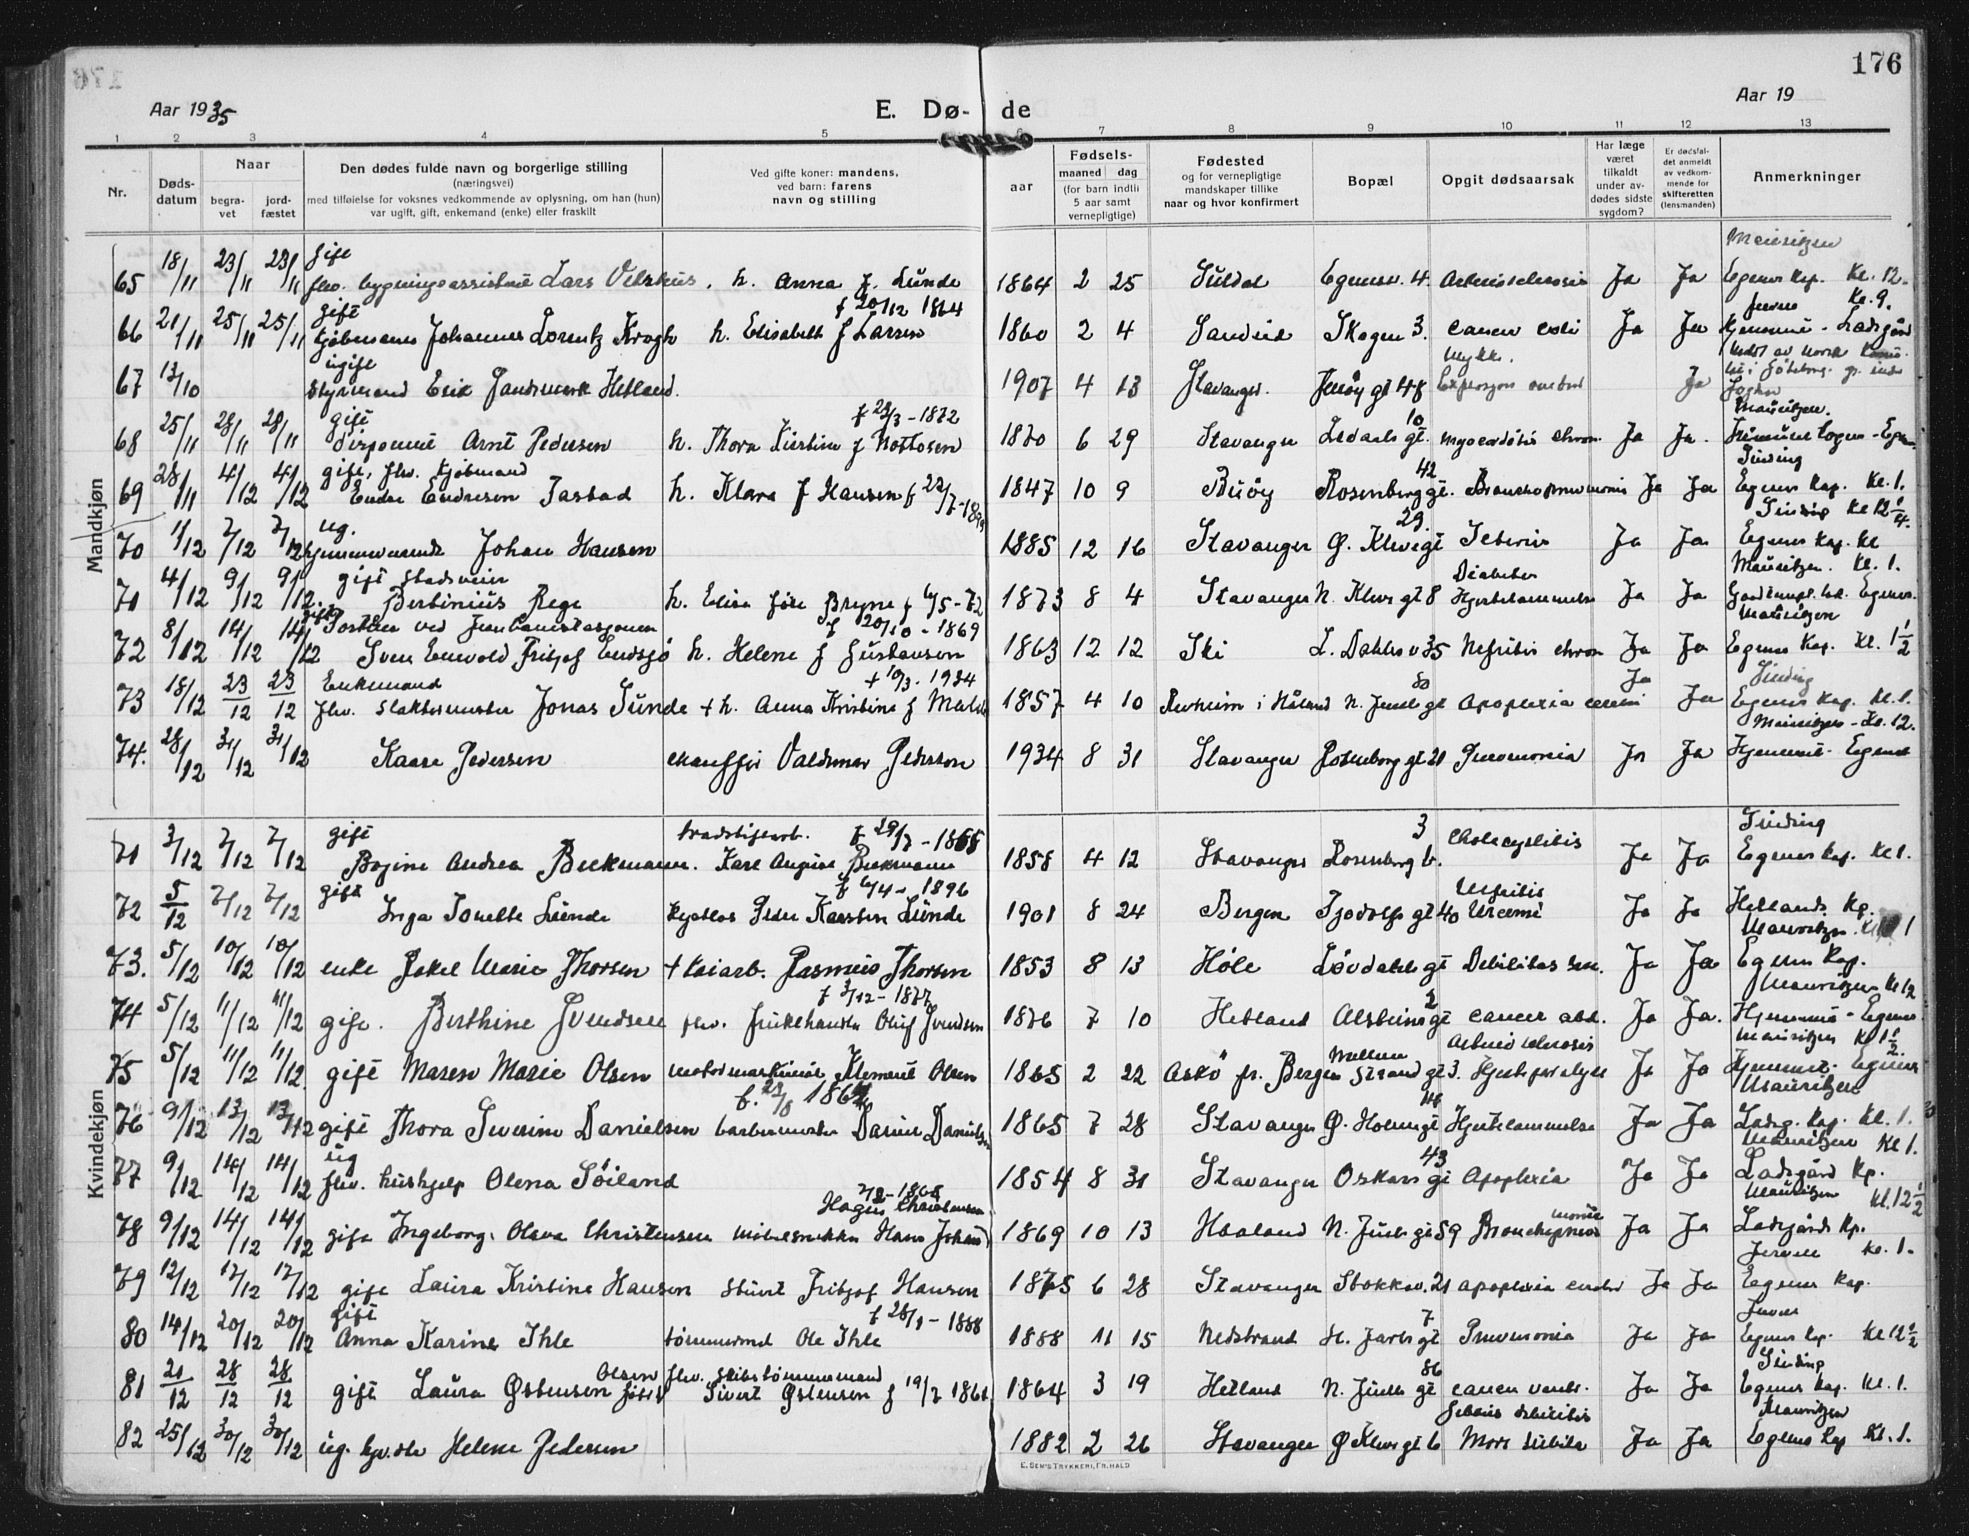 176
Aar 1935 E. Dø- de Aar 19
1 2 3 4 5 6 7 8 9 10 11 12 13
Nr. Døds-datum Naar begra-vet jord-fæstet Den dødes fulde navn og borgerlige stilling (næringsvei) med tilføielse for voksnes vedkommende av oplysning, om han (hun) var ugift, gift, enkemand (enke) eller fraskilt Ved gifte koner: mandens, ved barn: farens navn og stilling aar Fødsels- maaned dag (for barn indtil 5 aar samt vernepligtige) Fødested og for vernepligtige mandskaper tillike naar og hvor konfirmert Bopæl Opgit dødsaarsak Har læge været tilkaldt under av-dødes sidste sygdom? Er dødsfal-det anmeldt av vedkom-mende for skifteretten (lensmanden) Anmerkninger
Mandkjøn
gift
65 18/11 23/11 23/11 fhv. bygningsassistent Lars h. Anna f. Lunde 1864 2 25 Suldal Egenesv. 4. Ja Ja Egenes Kap. Kl. 12.
gift f 20/12 1864 Kl. 9.
66 21/11 25/11 25/11 kjøbmann Johannes Lorentz Krogh h. Elisabeth f Larsen 1860 2 4 Sandeid Skagen 3. cancer coli Ja Ja Hjemme - Ladegård
ugift
67 13/10 styrmand Erik Hetland. 1907 4 13 Stavanger. gt 48 Explosjon ombord Ja
gift f 28/3 - 1872 10 Mauritzen.
68 25/11 28/11 28/11 disponent Arnt Pedersen h. Thora Kirstine f 1870 6 29 Stavanger Lødals gt. myocarditis chron Ja Ja.
gift, fhv. kjøbmand 42 Sinding
69 28/11 4/12 4/12 Endre Endresen Tastad h. Klara f Hansen f 22/7-1899 1847 10 9 Buøy Rosenberggt. Bronchopneumonia Ja Ja Egenes Kap. Kl. 1.
ug. 29. Sinding Kl 12 1/4.
70 1/12 7/12 7/12 Johan Hansen 1885 12 16 Stavanger Ø. Kleivegt Icterus Ja Ja Egenes Kap. Kl
gift Diabetes Mauritzen. Kl. 1.
71 4/12 9/12 9/12 Bertinius Rege h. Elisa f 6/5-72 1873 8 4 Stavanger N. Kleivgt 8 Hjertelammelse Ja Ja Egenes.
gift Portner ved Jernbanestasjonen f 20/10 - 1869 Mauritzen
72 8/12 14/12 14/12 Sven Enevold Fritjof Endsjø h. Helene f Gustavsen 1863 12 12 Ski L. Dahls v 35 Nefritis chron Ja Ja Egenes Kap. Kl. 1 1/2
Enkemand + 10/3. 1934 80 Ja Sinding
73 18/12 23/12 23/12 fhv. slaktermester Jonas Sunde + h. Anna Kristine f Malde 1857 4 10 Revheim i Håland N. Juels gt Apoplexia cerebri Ja Egenes Kap. Kl. 1.
Mauritzen - Kl. 12.
74. 28/12 31/12 31/12 Kaare Pedersen chauffør Valdemar Pedersen 1934 8 31 Stavanger Rosenberg gt 21 Pneumonia Ja Ja Hjemme - Egenes
Kvindekjøn
gift f 29/7 - 1865 3 Cholecystitis Sinding
71 3/12 7/12 7/12 Bogine Andrea Beekmann. Karl August Beekmann 1858 4 12 Stavanger Rosenberg b. Ja Ja Egenes Kap. Kl 1.
gift f 6/4 - 1896 Nefritis
72 5/12 7/12 7/12 Inga Tonette Lunde Peder Karsten Lunde 1901 8 24 Bergen Tjodolfs gt 40 Uremi Ja Ja Hetlands Kp.
Mauritzen. Kl 1
73. 5/12 10/12 10/12 enke Rakel Marie Thorsen + kaiarb. Rasmus Thorsen 1853 8 13 Høle Løvdahls gt Debilitas sen. Ja Ja Egenes Kap.
f 3/12 - 1877 2 Mauritzen Kl 12
74 5/12 11/12 11/12 gift. Berthine Svendsen fhv. Oluf Svendsen 1876 7 10 Hetland gt cancer abd. Ja Ja. Hjemme - Egenes
Mauritzen Kl 1 1/2.
75 5/12 11/12 11/12 gift Maren Marie Olsen motormaskinist Klement Olsen 1865 2 22 Askø pr. Bergen Strand gt 3. Ja Ja Hjemme. Egenes
f. 23/8 1862 48 Mauritzen
76 9/12 13/12 13/12 gift Thora Severine Danielsen barbermester Danielsen 1865 7 28 Stavanger Ø. Holmegt Hjertelammelse Ja Ja Ladeg. Kap. Kl. 1.
ug 43 Mauritzen Kl 1.
77 9/12 14/12 14/12 fhv. hushjelp Olena Söiland 1854 8 31 Stavanger Oskars gt Apoplexia Ja Ja Ladegård Kp.
Mauritzen Kl. 12 1/2
78 9/12 14/12 14/12 gift Ingeborg Olava Christensen Hans Johan Christensen 1869 10 13 Haaland N. Juels gt 59 Bronchopneumonie Ja Ja Ladegårds Kp.
Kl. 1.
79 12/12 17/12 17/12 gift Laura Kristine Hansen Stuert Fritjof Hansen 1875 6 28 Stavanger Stokkav. 21 apoplexia cerebri Ja Ja Egenes Kap.
gift f 28/1 - 1888 7
80 14/12 20/12 20/12 Anna Karine Ihle tømmermd Ole Ihle 1888 11 15 Nedstrand H. Jarls gt Pneumonia Ja Ja Egenes Kap. Kl 12 1/2
Olsen fhv. skibstømmermand 86 Sinding
81 21/12 28/12 28/12 gift Laura Østensen født Sivert Østensen f 19/7 1861 1864 3 19 Hetland N. Juels gt cancer ventr. Ja Ja Egenes Kap. Kl. 1.
Mauritzen
82 25/12 30/12 30/12 ug. Helene Pedersen 1882 2 26 Stavanger Ø Kleivgt 6 Mors subita Ja Ja Egenes Kap Kl. 1.
E. SEM'S TRYKKERI, FR. HALD